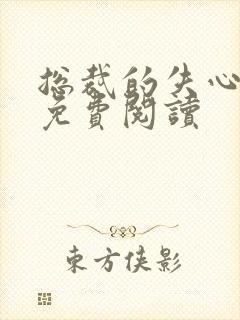 总裁的失心
免費閱讀
東方俠影